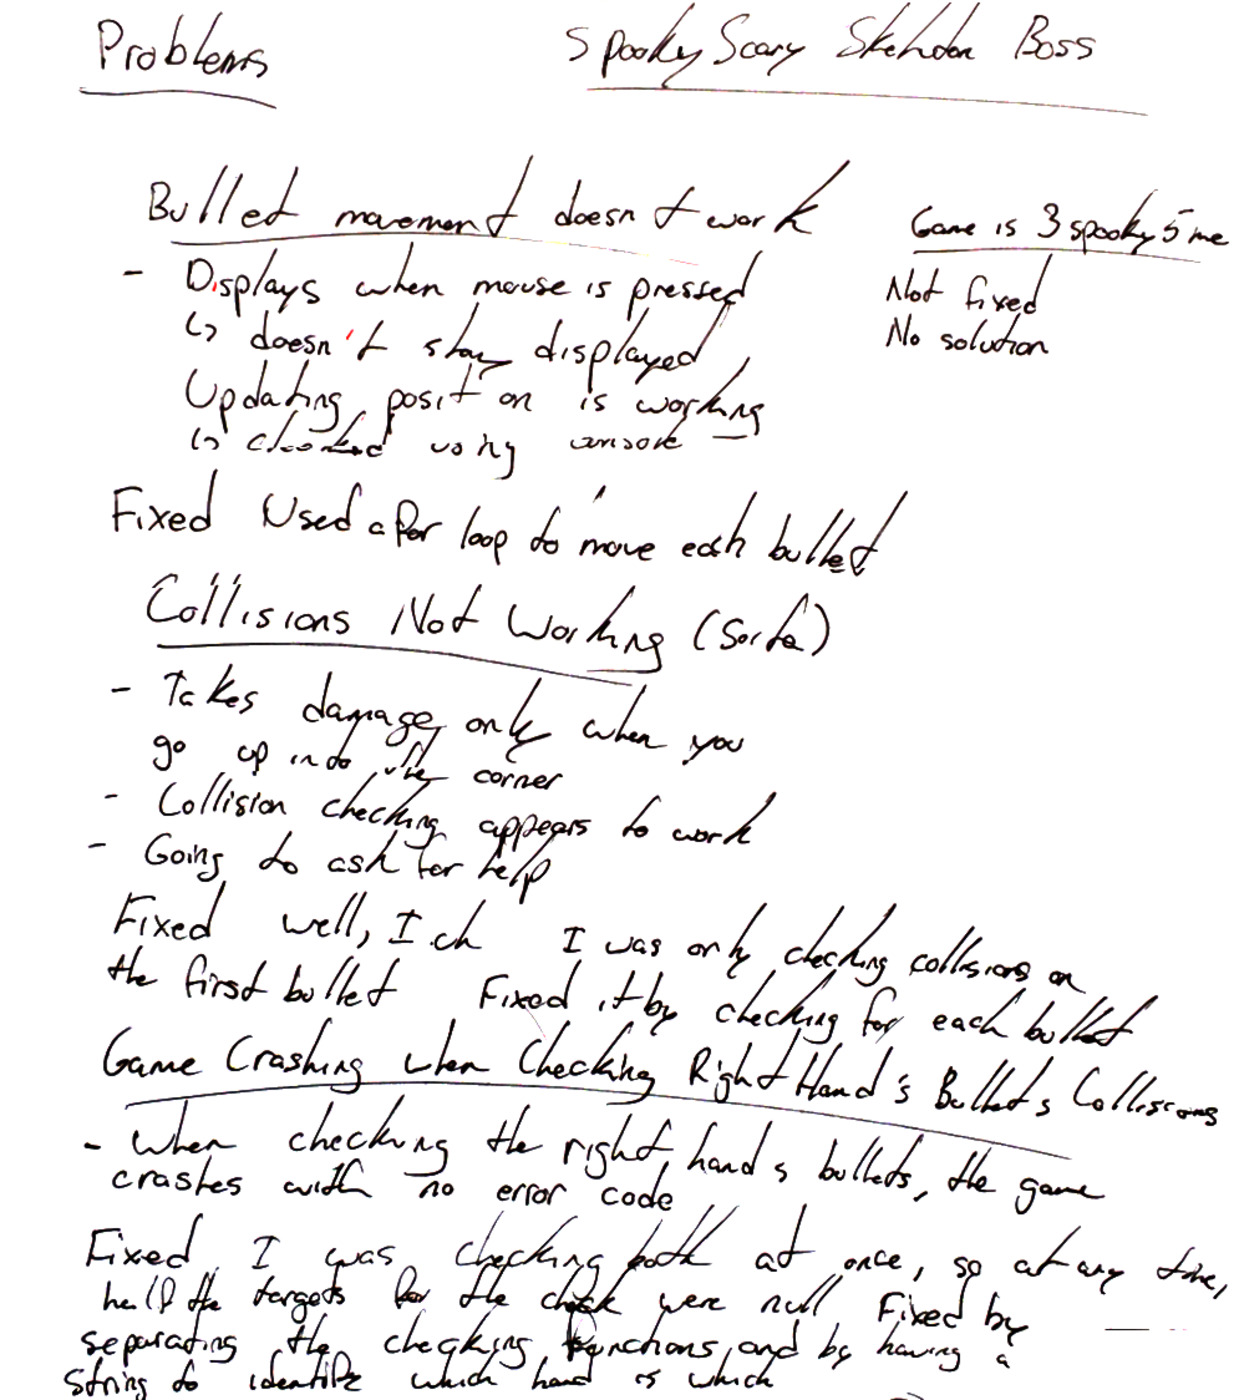 Problems
Spooky Scary Skeleton Boss
Bullet movement doesn't work
- Displays when mouse is pressed
↳ doesn't stay displayed
Updating position is working
↳ checked using console
Fixed Used a for loop to move each bullet
Game is 3spooky5me
Not fixed
No solution
Collisions Not Working (Sorta)
- Takes damage only when you
go up into the corner
- Collision checking appears to work
- Going to ask for help
Fixed well, I ch I was only checking collisions on
the first bullet Fixed it by checking for each bullet
Game Crashing when Checking Right Hand's Bullets Collisions
- When checking the right hands bullets, the game
crashes with no error code
Fixed I was checking both at once, so at any time,
half the targets for the check were null Fixed by
separating the checking functions and by having a
string to identify which hand is which